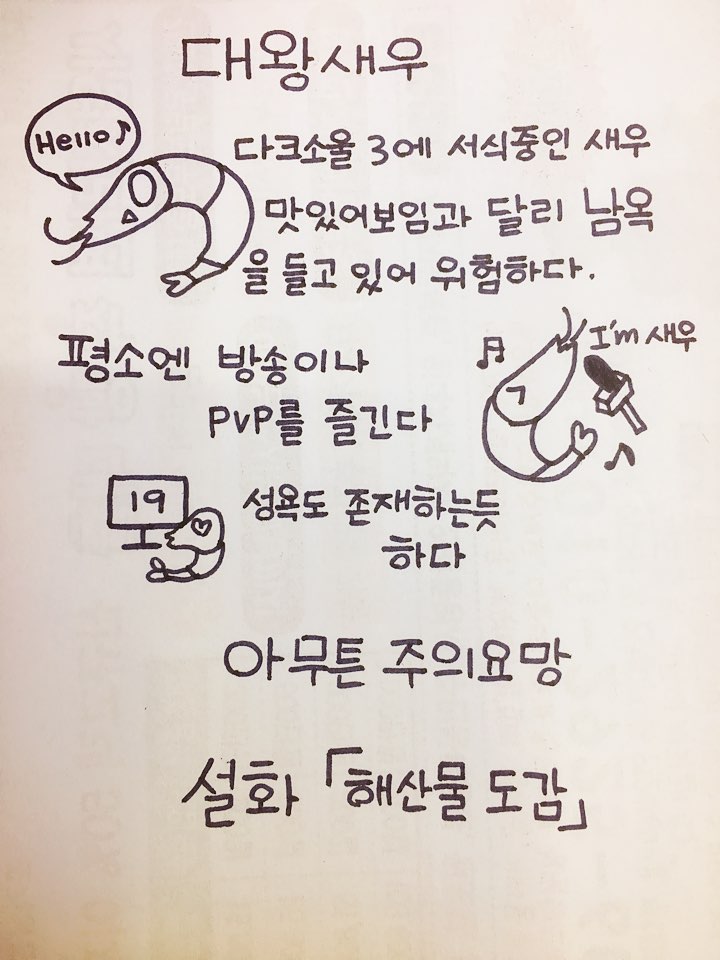 대왕새우
Hello♪
다크소울 3에 서식중인 새우
맛있어보임과 달리 남옥
을 들고 있어 위험하다.
I'm 새우
평소엔 방송이나
PvP를 즐긴다
19
성욕도 존재하는듯
하다
아무튼 주의요망
설화 「해산물 도감」